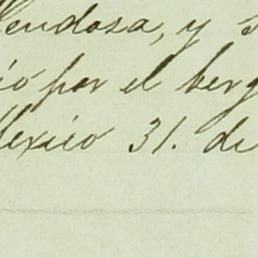 Mendoza, y
ió por el berg
Mexico 31. de